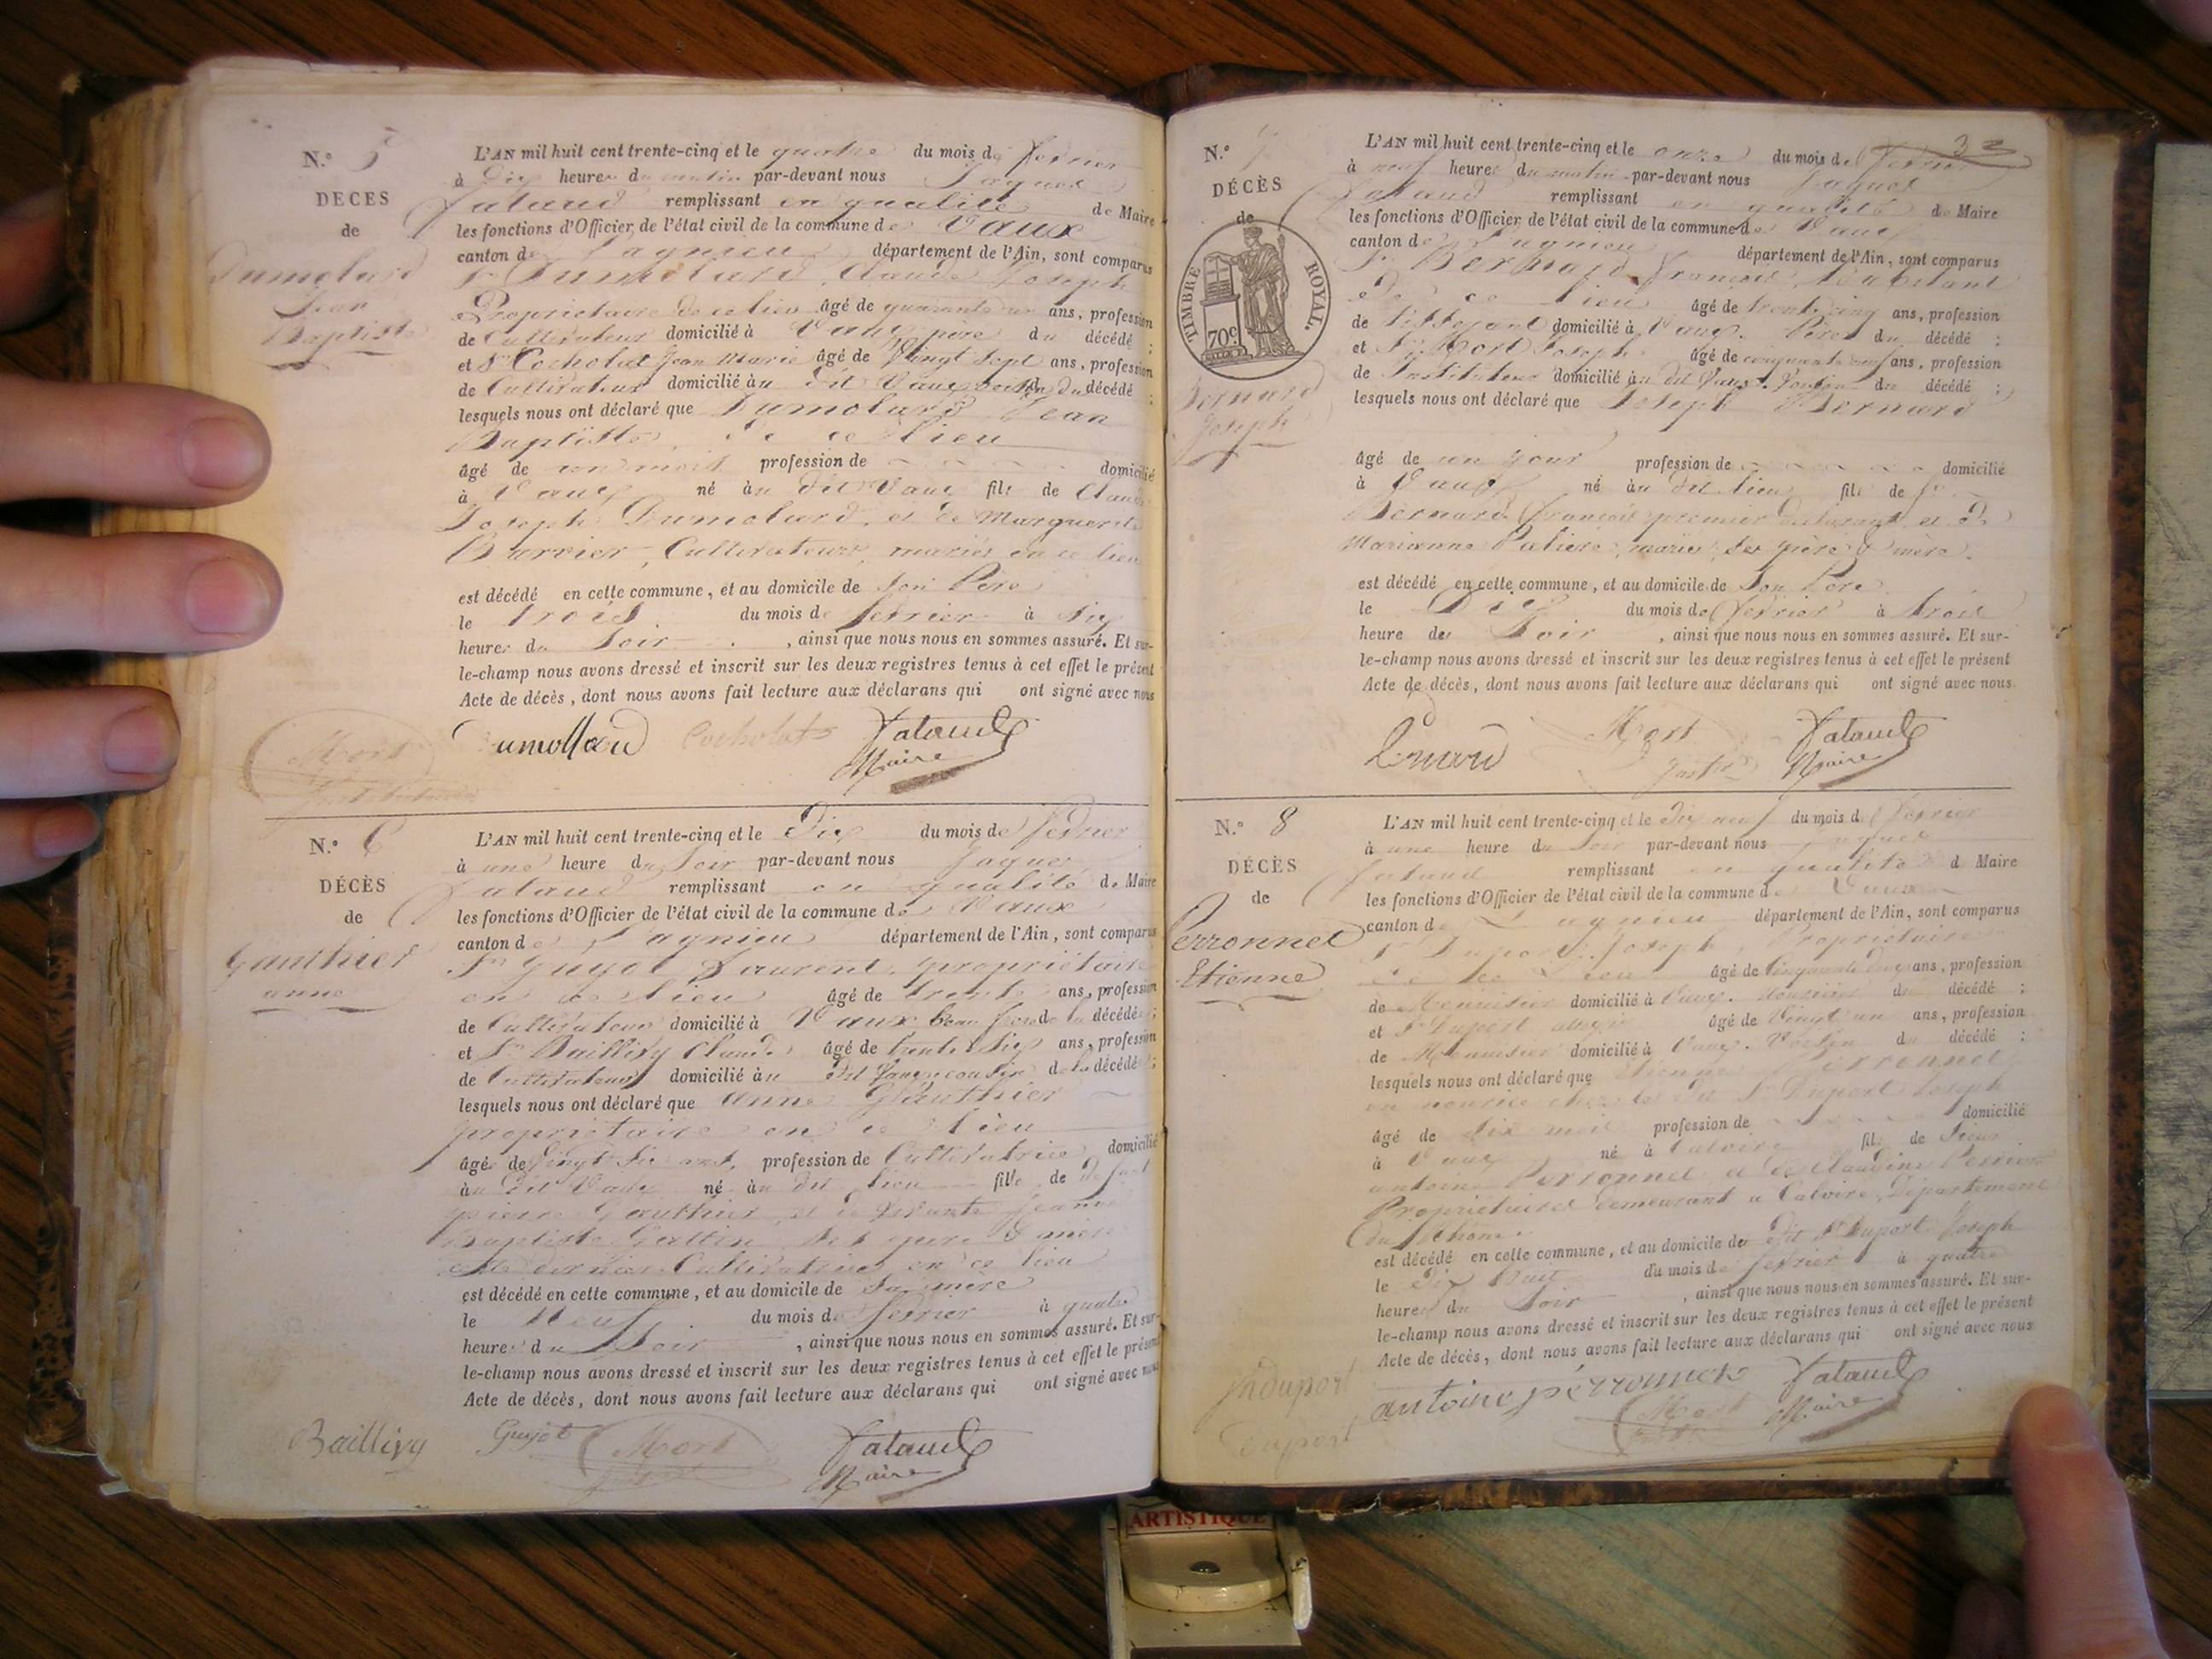 N.° 5
DECES
de
Dumolard
Jean
Baptiste
L'AN mil huit cent trente-cinq et le quatre du mois de fevrier
à Dix heures du matin par-devant nous Jaques
fataud remplissant en qualité de Maire
les fonctions d'Officier de l'état civil de la commune de Vaux
canton de Lagnieu département de l'Ain, sont comparus
Sr Dumolard, Claude Joseph
Proprietaire de ce lieu âgé de quarante un ans, profession
de Cultivateur domicilié à Vaux pere du décédé ;
et Sr Cocholat Jean Marie âgé de Vingt Sept ans, profession
de Cultivateur domicilié au dit Vaux voisin du décédé ;
lesquels nous ont déclaré que Dumolard Jean
Baptiste, de ce lieu
âgé de un mois profession de domicilié
à Vaux né au dit Vaux fils de Claude
Joseph Dumolard, et de Marguerite
Barvier, Cultivateurs, mariés en ce lieu
est décédé en cette commune, et au domicile de Son Père
le trois du mois de fevrier à Six
heures du Soir , ainsi que nous nous en sommes assuré. Et sur-
le-champ nous avons dressé et inscrit sur les deux registres tenus à cet effet le présent
Acte de décès, dont nous avons fait lecture aux déclarans qui ont signé avec nous
Mort Dumollard Cocholat fataud
Instituteur Maire
N.° 6
DÉCÈS
de
Gauthier
anne
L'AN mil huit cent trente-cinq et le Dix du mois de fevrier
à une heure du Soir par-devant nous Jaques
fataud remplissant en qualité de Maire
les fonctions d'Officier de l'état civil de la commune de Vaux
canton de Lagnieu département de l'Ain, sont comparus
Sr Guyot Laurent, propriétaire
en ce lieu âgé de trente ans, profession
de Cultivateur domicilié à Vaux beau frere de la décédée ;
et Sr Baillivy Claude âgé de trente Six ans, profession
de Cultivateur domicilié au dit Vaux cousin de la décédé ;
lesquels nous ont déclaré que Anne Gauthier
propriétaire en ce lieu
âgée de Vingt Six ans, profession de Cultivatrice domicilié
au dit Vaux né au dit lieu fille de defunt
pierre Gauthier, et de vivante Jeanne
Baptiste Gattin ses pere & mere
cette dernière Cultivatrice en ce lieu
est décédé en cette commune, et au domicile de Sa mère
le Neuf du mois de fevrier à quatre
heures du Soir , ainsi que nous nous en sommes assuré. Et sur-
le-champ nous avons dressé et inscrit sur les deux registres tenus à cet effet le présent
Acte de décès, dont nous avons fait lecture aux déclarans qui ont signé avec nous
Baillivy Guyot Mort fataud
Maire
3
N.° 7
DÉCÈS
de
TIMBRE ROYAL.
70c.
Bernard
Joseph
L'AN mil huit cent trente-cinq et le onze du mois de fevrier
à neuf heures du matin par-devant nous Jaques
fataud remplissant en qualité de Maire
les fonctions d'Officier de l'état civil de la commune de Vaux
canton de Lagnieu département de l'Ain, sont comparus
Sr Bernard françois, habitant
de ce lieu âgé de trente cinq ans, profession
de tisserant domicilié à Vaux. Père du décédé ;
et Sr Mort Joseph âgé de cinquante ans, profession
de Instituteur domicilié au dit Vaux. Voisin du décédé ;
lesquels nous ont déclaré que Joseph Bernard
âgé de un jour profession de domicilié
à Vaux né au dit lieu fils de Sr
Bernard françois premier declarant et de
Marianne Paliere, mariés ses père & mère.
est décédé en cette commune, et au domicile de Son Pere
le Dix du mois de fevrier à trois
heure du Soir , ainsi que nous nous en sommes assuré. Et sur-
le-champ nous avons dressé et inscrit sur les deux registres tenus à cet effet le présent
Acte de décès, dont nous avons fait lecture aux déclarans qui ont signé avec nous.
Bernard Mort fataud
Maire
N.° 8
DÉCÈS
de
Perronnet
Etienne
L'AN mil huit cent trente-cinq et le Dix neuf du mois de fevrier
à une heure du Soir par-devant nous Jaques
fataud remplissant en qualité d Maire
les fonctions d'Officier de l'état civil de la commune de Vaux
canton de Lagnieu département de l'Ain, sont comparus
Sr Duport Joseph, Propriétaire
de ce Lieu âgé de Cinquante ans, profession
de Menuisier domicilié à Vaux. du décédé ;
et Sr Duport âgé de Vingt un ans, profession
de Menuisier domicilié à Vaux. Voisin du décédé ;
lesquels nous ont déclaré que Etienne Perronnet
en nourice chez le dit Sr Duport Joseph
âgé de Six mois profession de domicilié
à Vaux né à Caluire fils de Sieur
antoine Perronnet et de Claudine
Propriétaires demeurant a Caluire, Département
du Rhone.
est décédé en cette commune, et au domicile du dit Sr Duport Joseph
le Dix Huit du mois de fevrier à quatre
heures du Soir , ainsi que nous nous en sommes assuré. Et sur-
le-champ nous avons dressé et inscrit sur les deux registres tenus à cet effet le présent
Acte de décès, dont nous avons fait lecture aux déclarans qui ont signé avec nous
Jh duport antoine pérronnet fataud
Duport Mort Maire
ARTISTIQUE